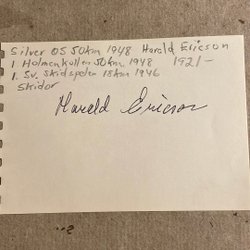 Silver OS 50km 1948 Harald Ericson
1. Holmenkollen 50km 1948 1921-
1. Sv. Skidspelen 18km 1946
Skidor
Harald Ericson